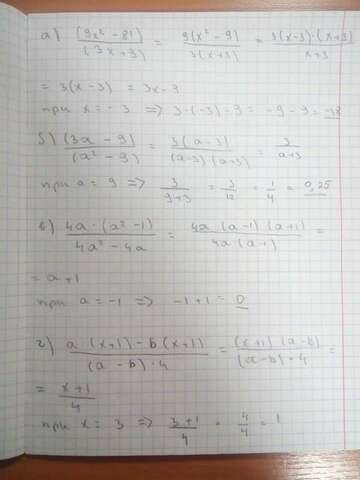 а) (9x² - 81)/(3x+3) = 9(x² - 9)/3(x+3) = 3(x-3)·(x+3)/x+3
= 3(x-3) = 3x-9
при x = -3 => 3·(-3)-9 = -9-9 = -18
б) (3a - 9)/(a² - 9) = 3(a-3)/(a-3)·(a+3) = 3/a+3
при a = 9 => 3/9+3 = 3/12 = 1/4 = 0,25
в) 4a·(a² -1)/4a² - 4a = 4a (a-1)(a+1)/4a (a-1) =
= a+1
при a = -1 => -1+1 = 0
г) a (x+1) - b (x+1)/(a - b)·4 = (x+1)(a-b)/(a-b)·4 =
= x+1/4
при x = 3 => 3+1/4 = 4/4 = 1